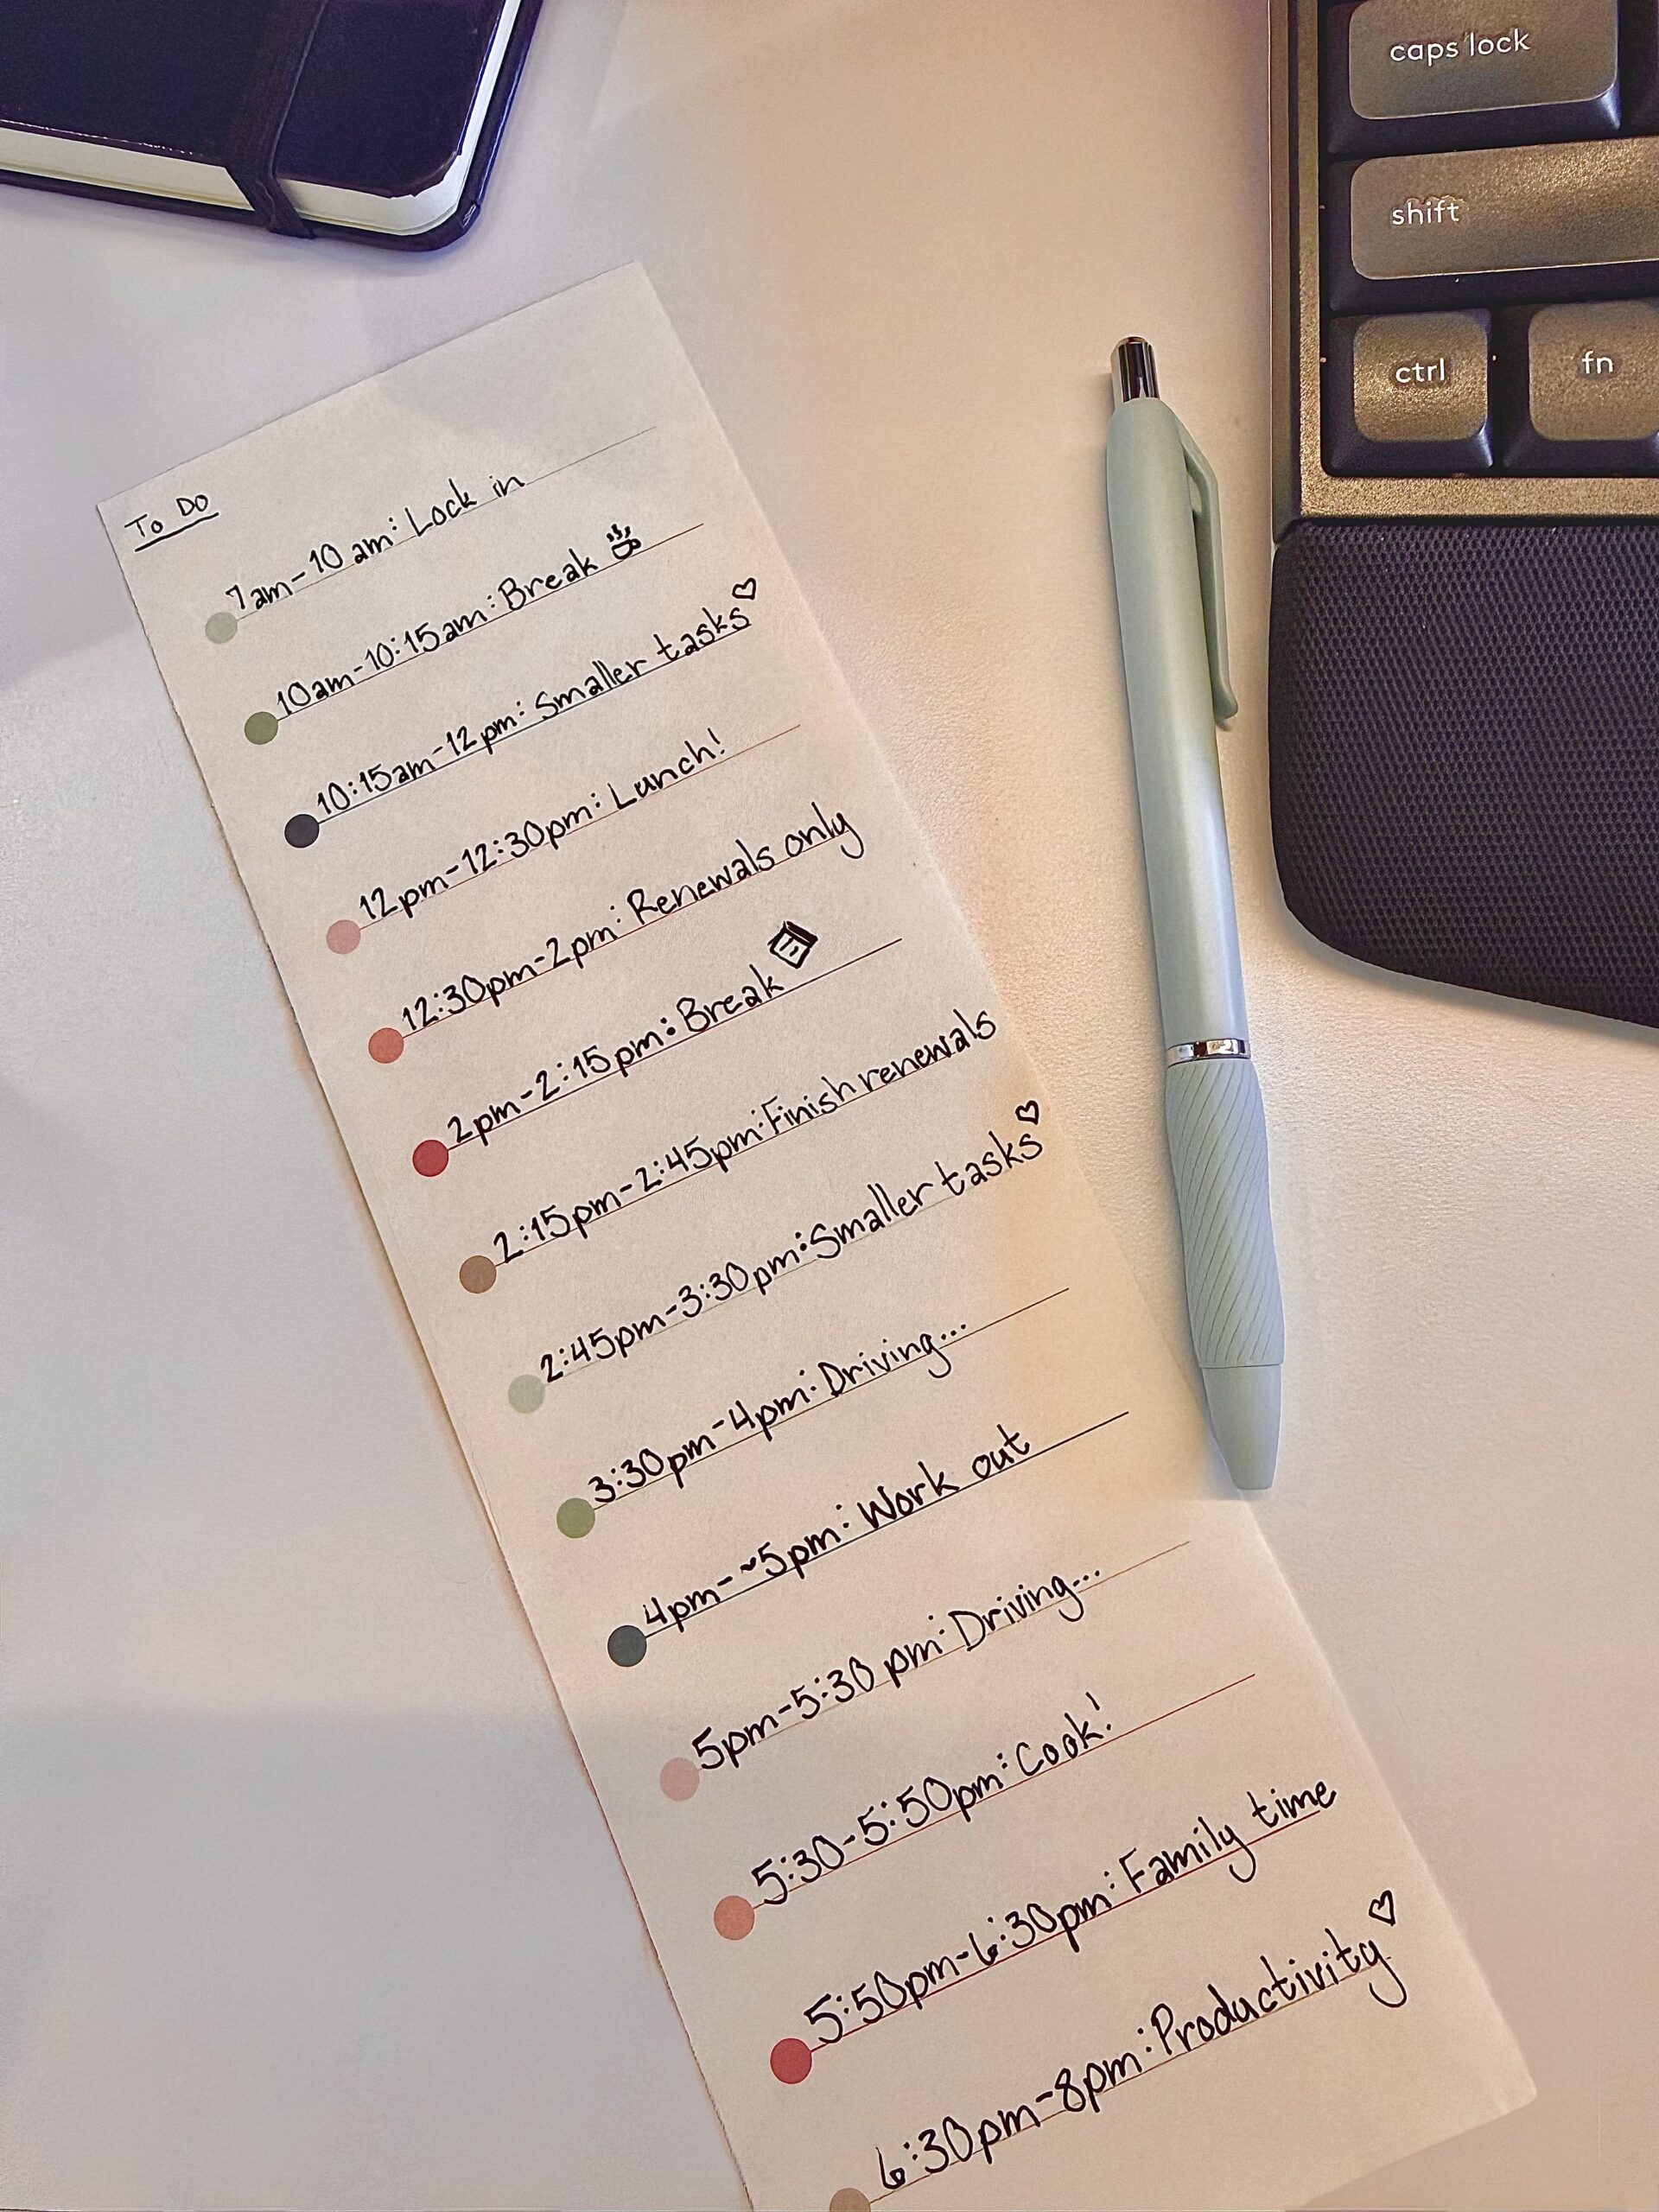 caps lock
shift
ctrl fn
To Do
7am-10 am: Lock in
10am-10:15am: Break
10:15am-12pm: Smaller tasks♡
12pm-12:30pm: Lunch!
12:30pm-2pm: Renewals only
2pm-2:15pm: Break
2:15pm-2:45pm: Finish renewals
2:45pm-3:30pm: Smaller tasks♡
3:30pm-4pm: Driving...
4pm-~5pm: Work out
5pm-5:30 pm: Driving...
5:30-5:50pm: Cook!
5:50pm-6:30pm: Family time
6:30pm-8pm: Productivity♡